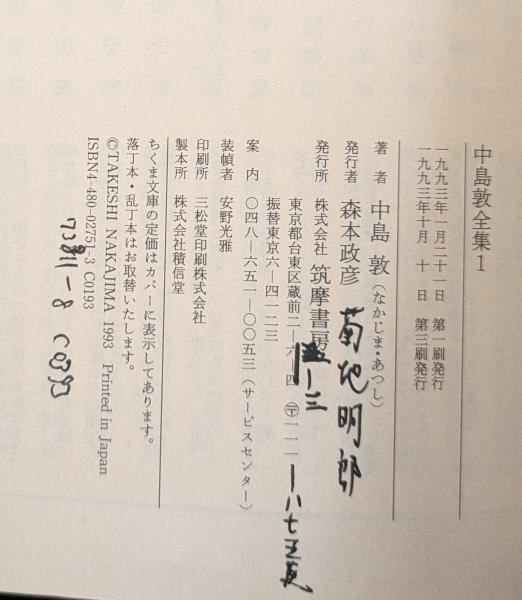 中島敦全集1
一九九三年一月二十一日 第一刷発行
一九九三年十月 十 日 第三刷発行
著 者 中島 敦(なかじま・あつし)
発行者 森本政彦 菊地明郎
発行所 株式会社 筑摩書房
東京都台東区蔵前二―六―四 〒一一一
―三
―八七五五
振替東京六―四一二三
案 内 〇四八―六五一―〇〇五三(サービスセンター)
装幀者 安野光雅
印刷所 三松堂印刷株式会社
製本所 株式会社積信堂
ちくま文庫の定価はカバーに表示してあります。
落丁本・乱丁本はお取替いたします。
©TAKESHI NAKAJIMA 1993 Printed in Japan
ISBN4-480-02751-3 C0193